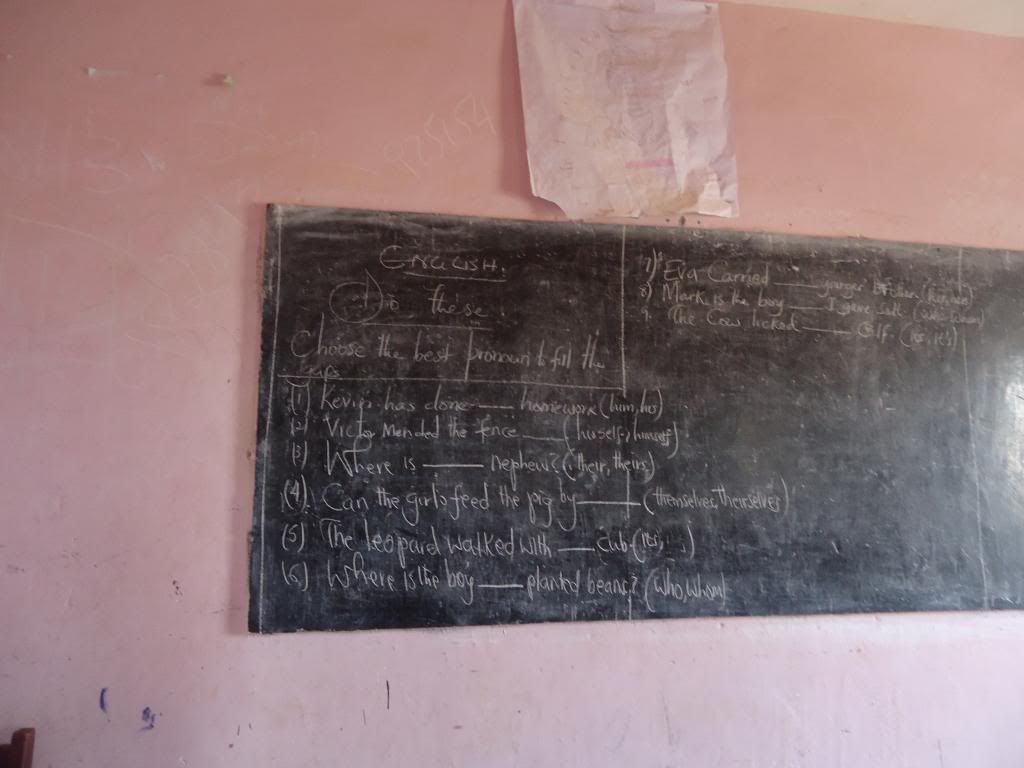 925154
ENGLISH.
these.
Choose the best pronoun to fill the
gaps
(1) Kevin has done ___ homework (him, his)
(2) Victor mended the fence ___ (hisself, himself)
(3) Where is ___ nephew? (their, theirs)
(4). Can the girls feed the pig by ___ (themselves, theirselves)
(5) The leopard walked with ___ cub. (its,
(6) Where is the boy ___ planted beans? (who, whom)
7) Eva Carried ___ younger brother
8) Mark is the boy ___ I gave
9. The Cow licked ___ calf. (its, it's)